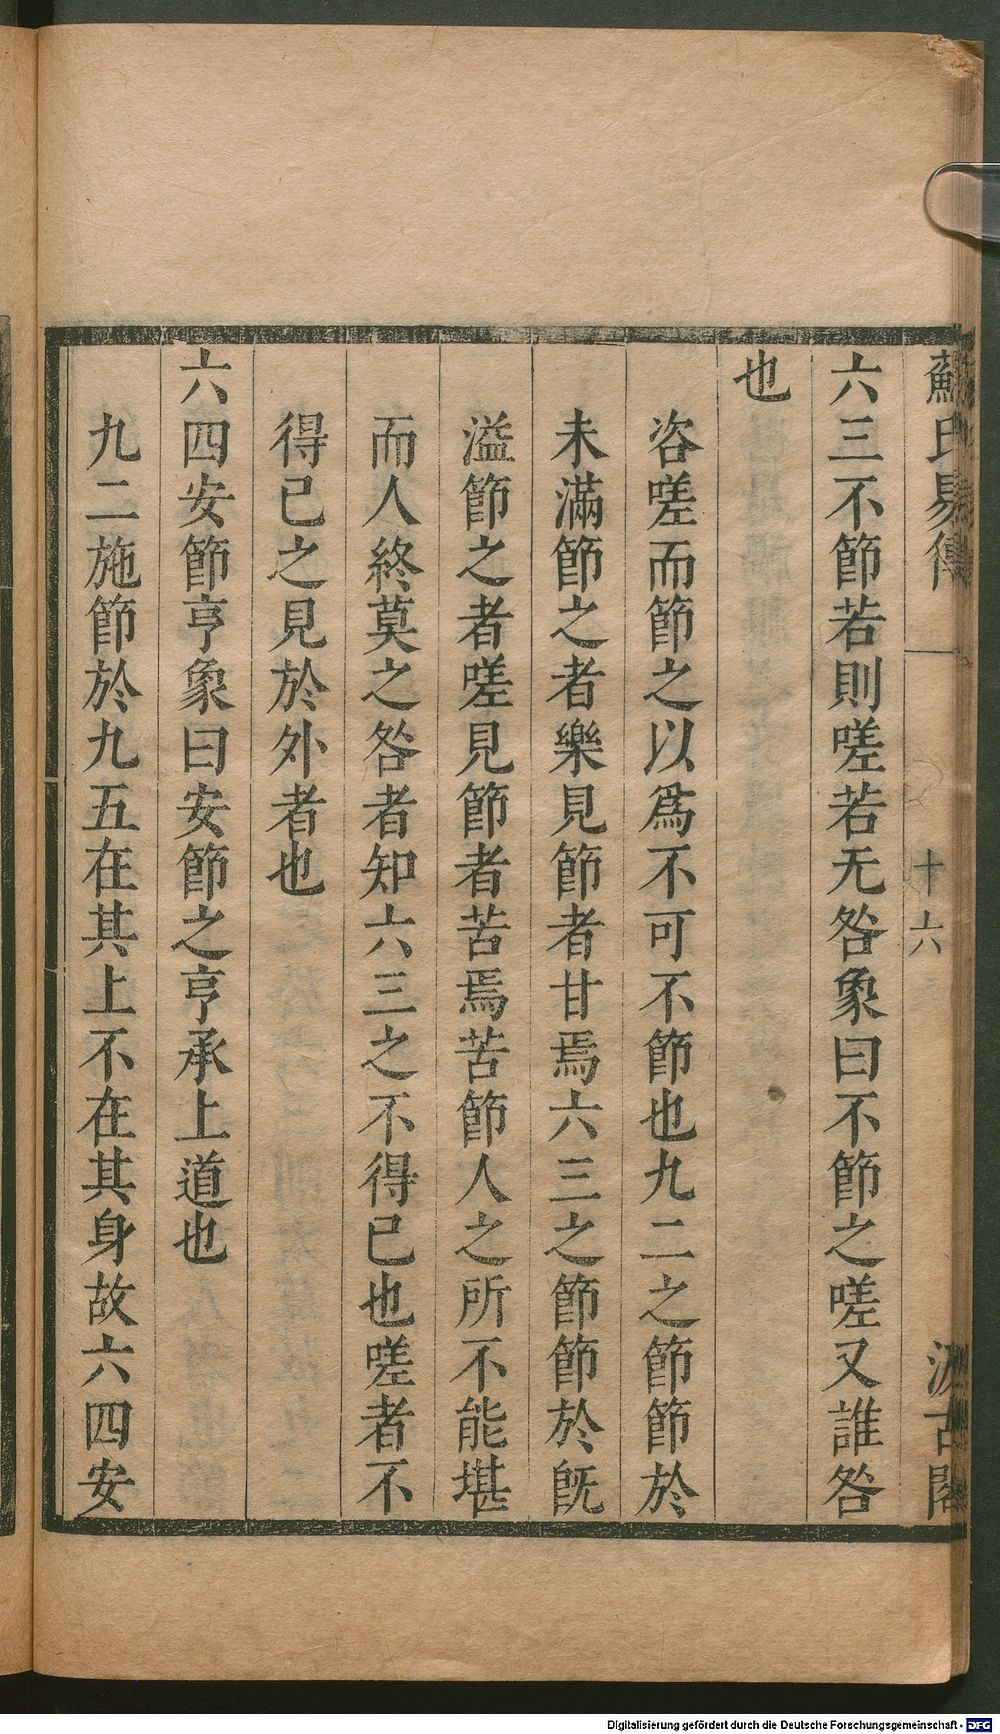 蘇氏易傳 十六 汲古閣
六三不節若則嗟若无咎象曰不節之嗟又誰咎
也
咨嗟而節之以爲不可不節也九二之節節於
未滿節之者樂見節者甘焉六三之節節於旣
溢節之者嗟見節者苦焉苦節人之所不能堪
而人終莫之咎者知六三之不得已也嗟者不
得已之見於外者也
六四安節亨象曰安節之亨承上道也
九二施節於九五在其上不在其身故六四安
Digitalisierung gefördert durch die Deutsche Forschungsgemeinschaft - DFG